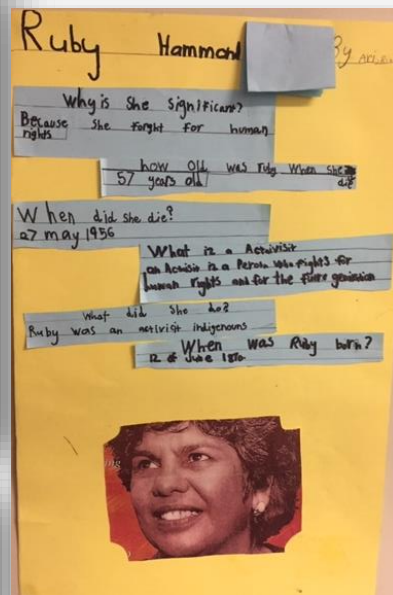 Ruby Hammond By
Why is she significant?
Because she forght for human
rights
how old was ruby when she
57 years old die?
When did she die?
27 may 1956
What is a Activisit
an Activist is a Person who fights for
human rights and for the future
What did she do?
Ruby was an activist indigenouns
When was Ruby born?
12 of June